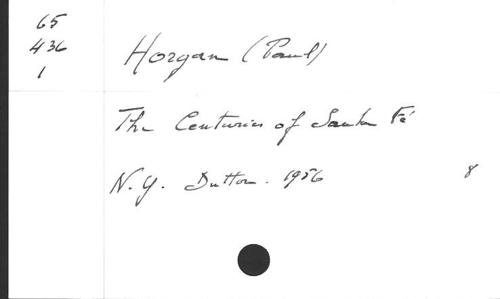 65
436
1
Horgan (Paul)
The Centuries of Santa Fé
N.Y. Dutton. 1956
8